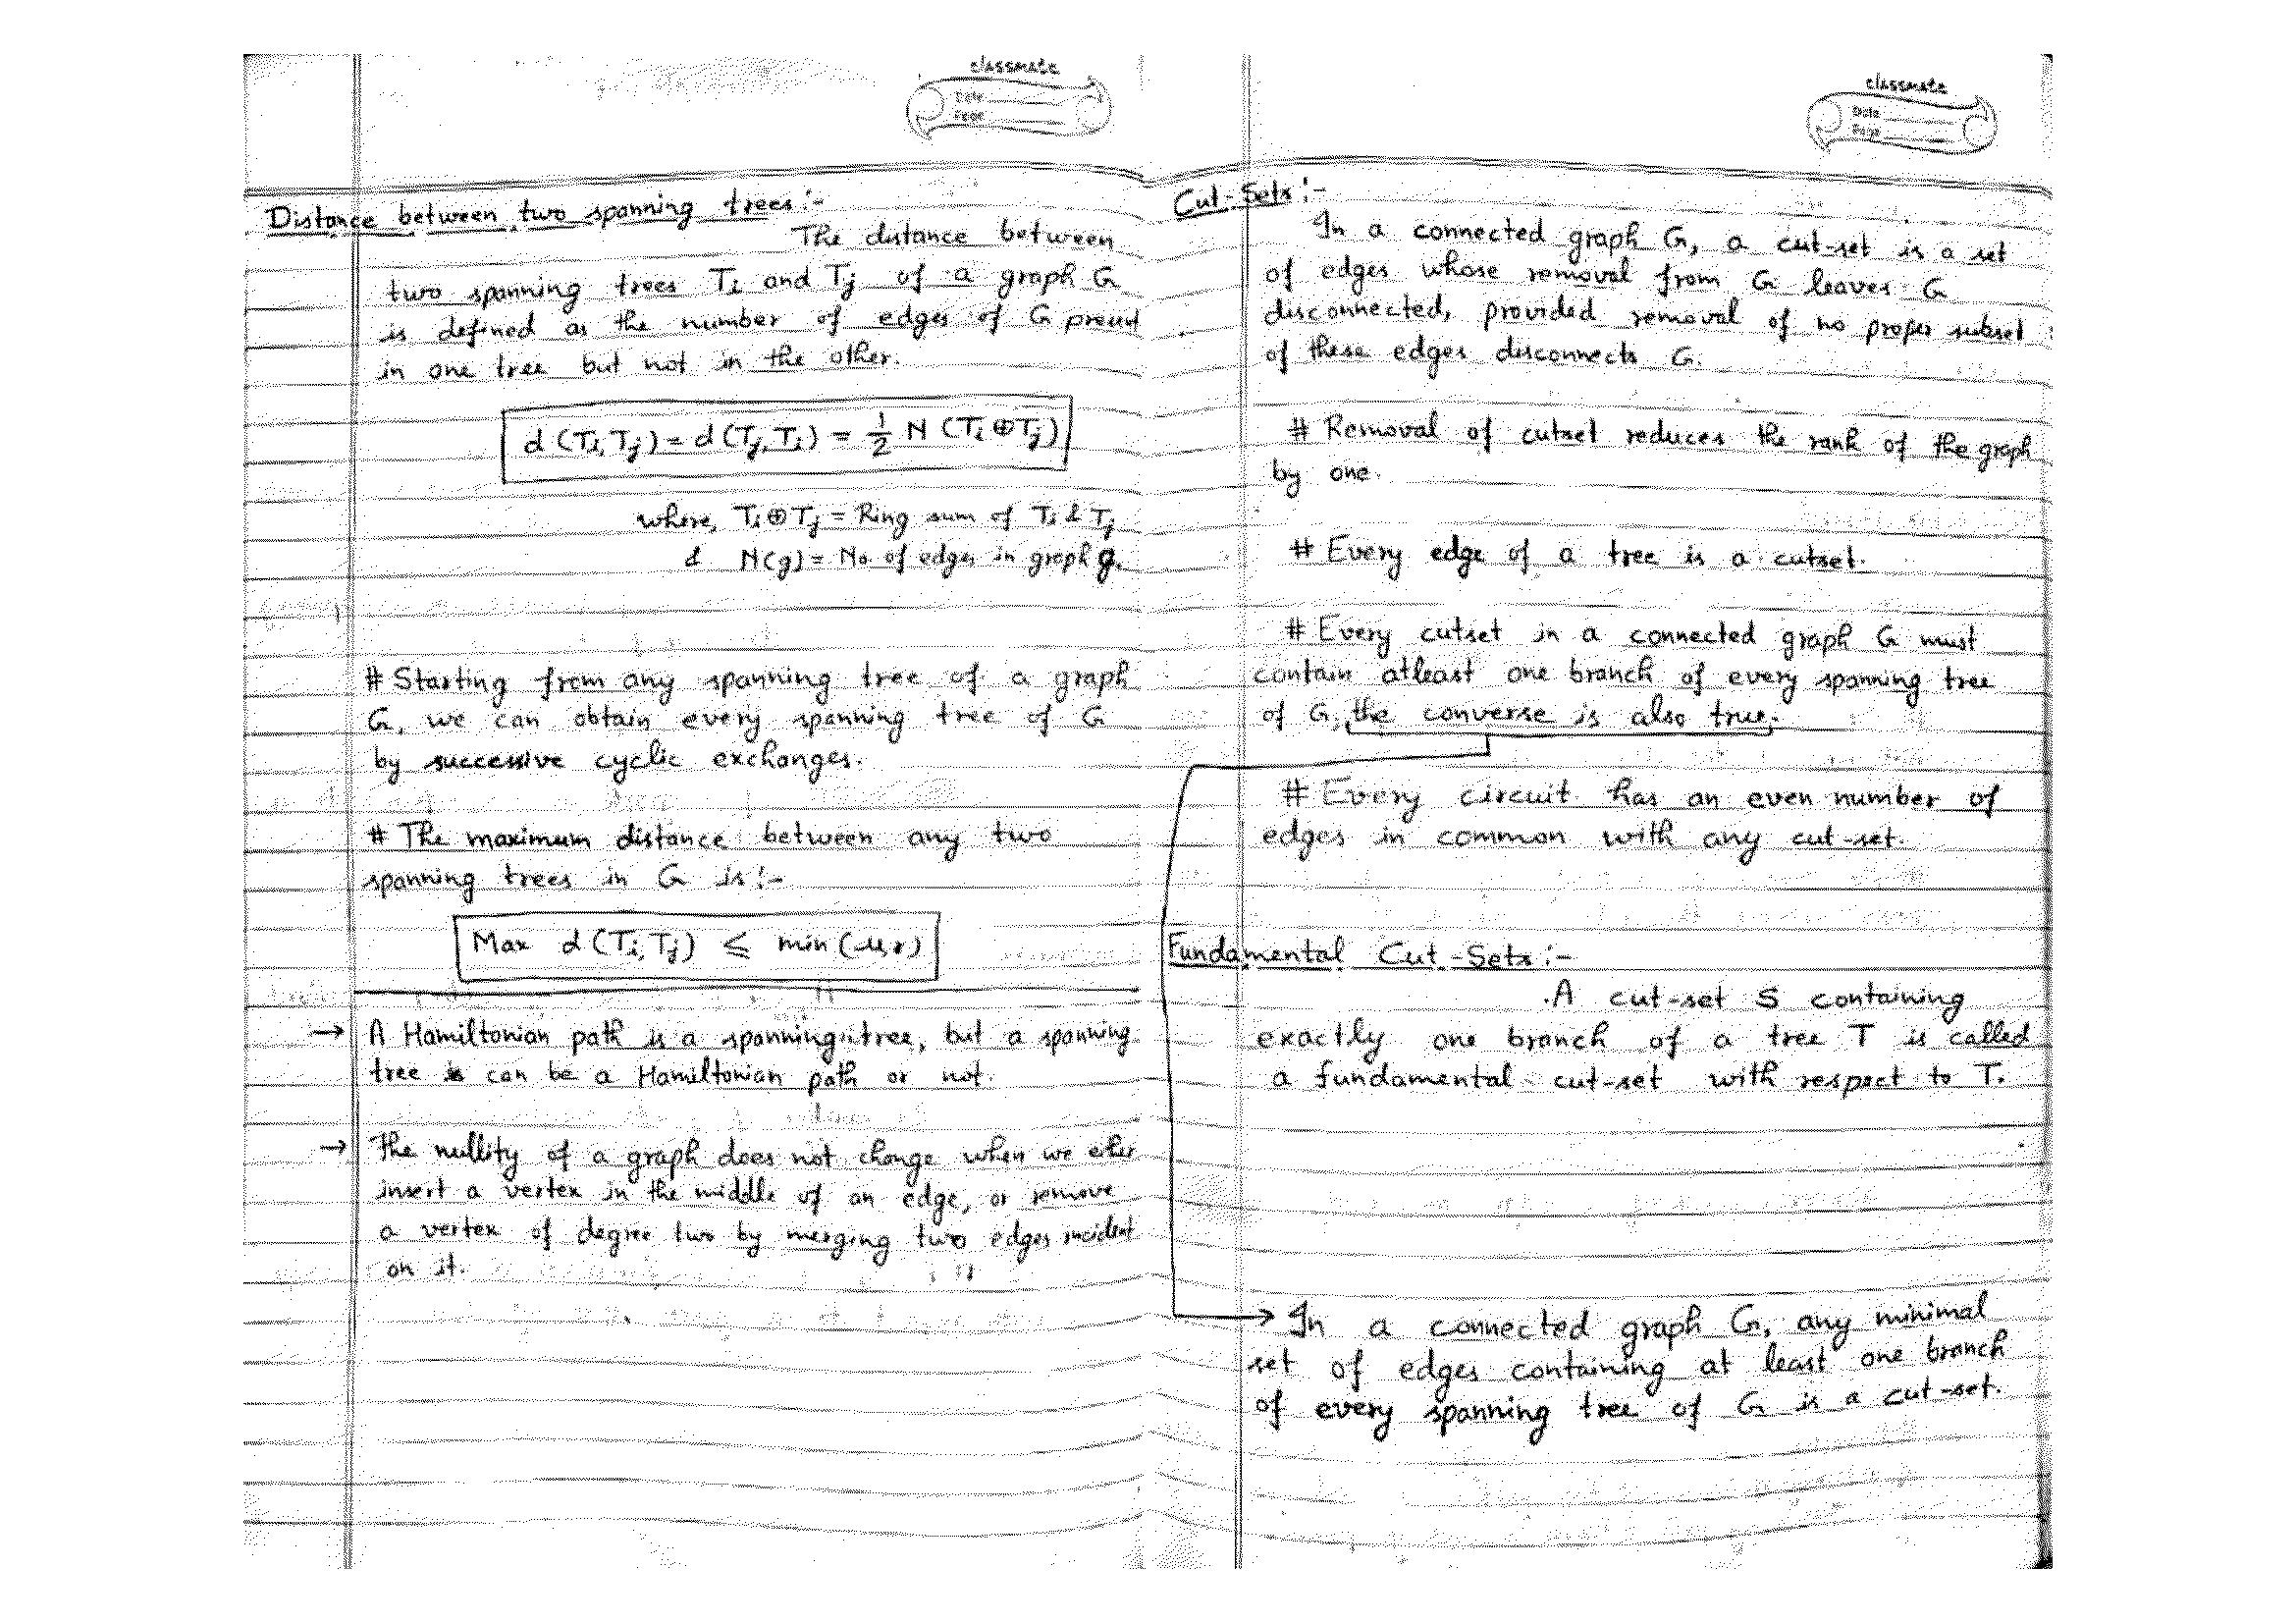 classmate
Date
Page
Distance between two spanning trees :-
The distance between
two spanning trees Ti and Tj of a graph G
is defined as the number of edges of G present
in one tree but not in the other.
d (Ti, Tj) = d (Tj, Ti) = 1/2 N (Ti ⊕ Tj)
where, Ti ⊕ Tj = Ring sum of Ti & Tj
& N(g) = No. of edges in graph g.
# Starting from any spanning tree of a graph
G, we can obtain every spanning tree of G
by successive cyclic exchanges.
# The maximum distance between any two
spanning trees in G is :-
Max d (Ti, Tj) ≤ min (μ, r)
→ A Hamiltonian path is a spanning tree, but a spanning
tree is can be a Hamiltonian path or not.
→ The nullity of a graph does not change when we either
insert a vertex in the middle of an edge, or remove
a vertex of degree two by merging two edges incident
on it.
classmate
Date
Page
Cut-Sets :-
In a connected graph G, a cut-set is a set
of edges whose removal from G leaves G
disconnected, provided removal of no proper subset
of these edges disconnects G.
# Removal of cutset reduces the rank of the graph
by one.
# Every edge of a tree is a cutset.
# Every cutset in a connected graph G must
contain atleast one branch of every spanning tree
of G, the converse is also true.
# Every circuit has an even number of
edges in common with any cut-set.
Fundamental Cut-Sets :-
A cut-set S containing
exactly one branch of a tree T is called
a fundamental cut-set with respect to T.
→ In a connected graph G, any minimal
set of edges containing at least one branch
of every spanning tree of G is a cut-set.